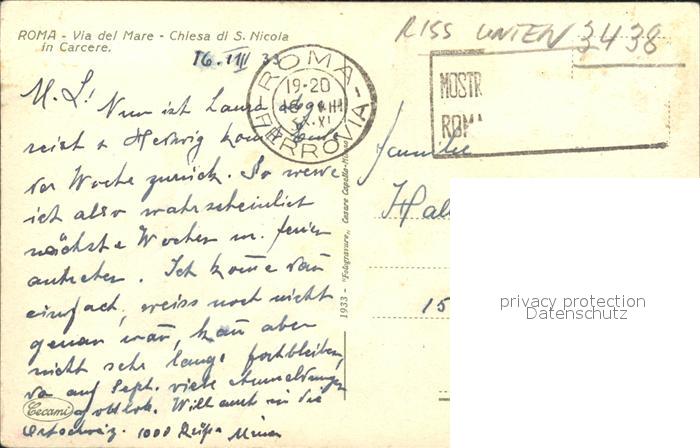 ROMA - Via del Mare - Chiesa di S. Nicola
in Carcere.
RISS UNTEN
3438
16. VIII 33
ROMA
FERROVIA
19-20
XI
MOSTR
ROMA
M. L! Nun ist Laura
reist & Hedwig
der Woche zurück. So werde
ich also wahrscheinlich
nächste Woche m. Ferien
antreten. Ich komme dann
einfach, weiss noch nicht
genau wann, kann aber
nicht sehr lange fortbleiben,
da auf Sept. viele Anmeldungen
gottlob. Will auch in die
1000 Küsse
Familie
Hal
15
1933 - "Fotogravure" Cesare Capello-Milano
Cecami
privacy protection
Datenschutz